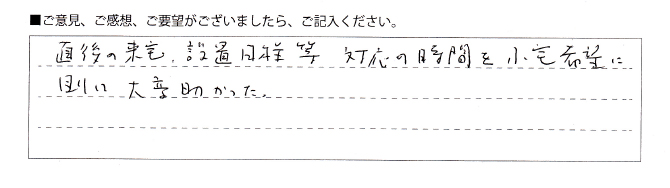 ■ご意見、ご感想、ご要望がございましたら、ご記入ください。
直後の来宅、設置日程等 対応の時間を小宅希望に
大変助かった。